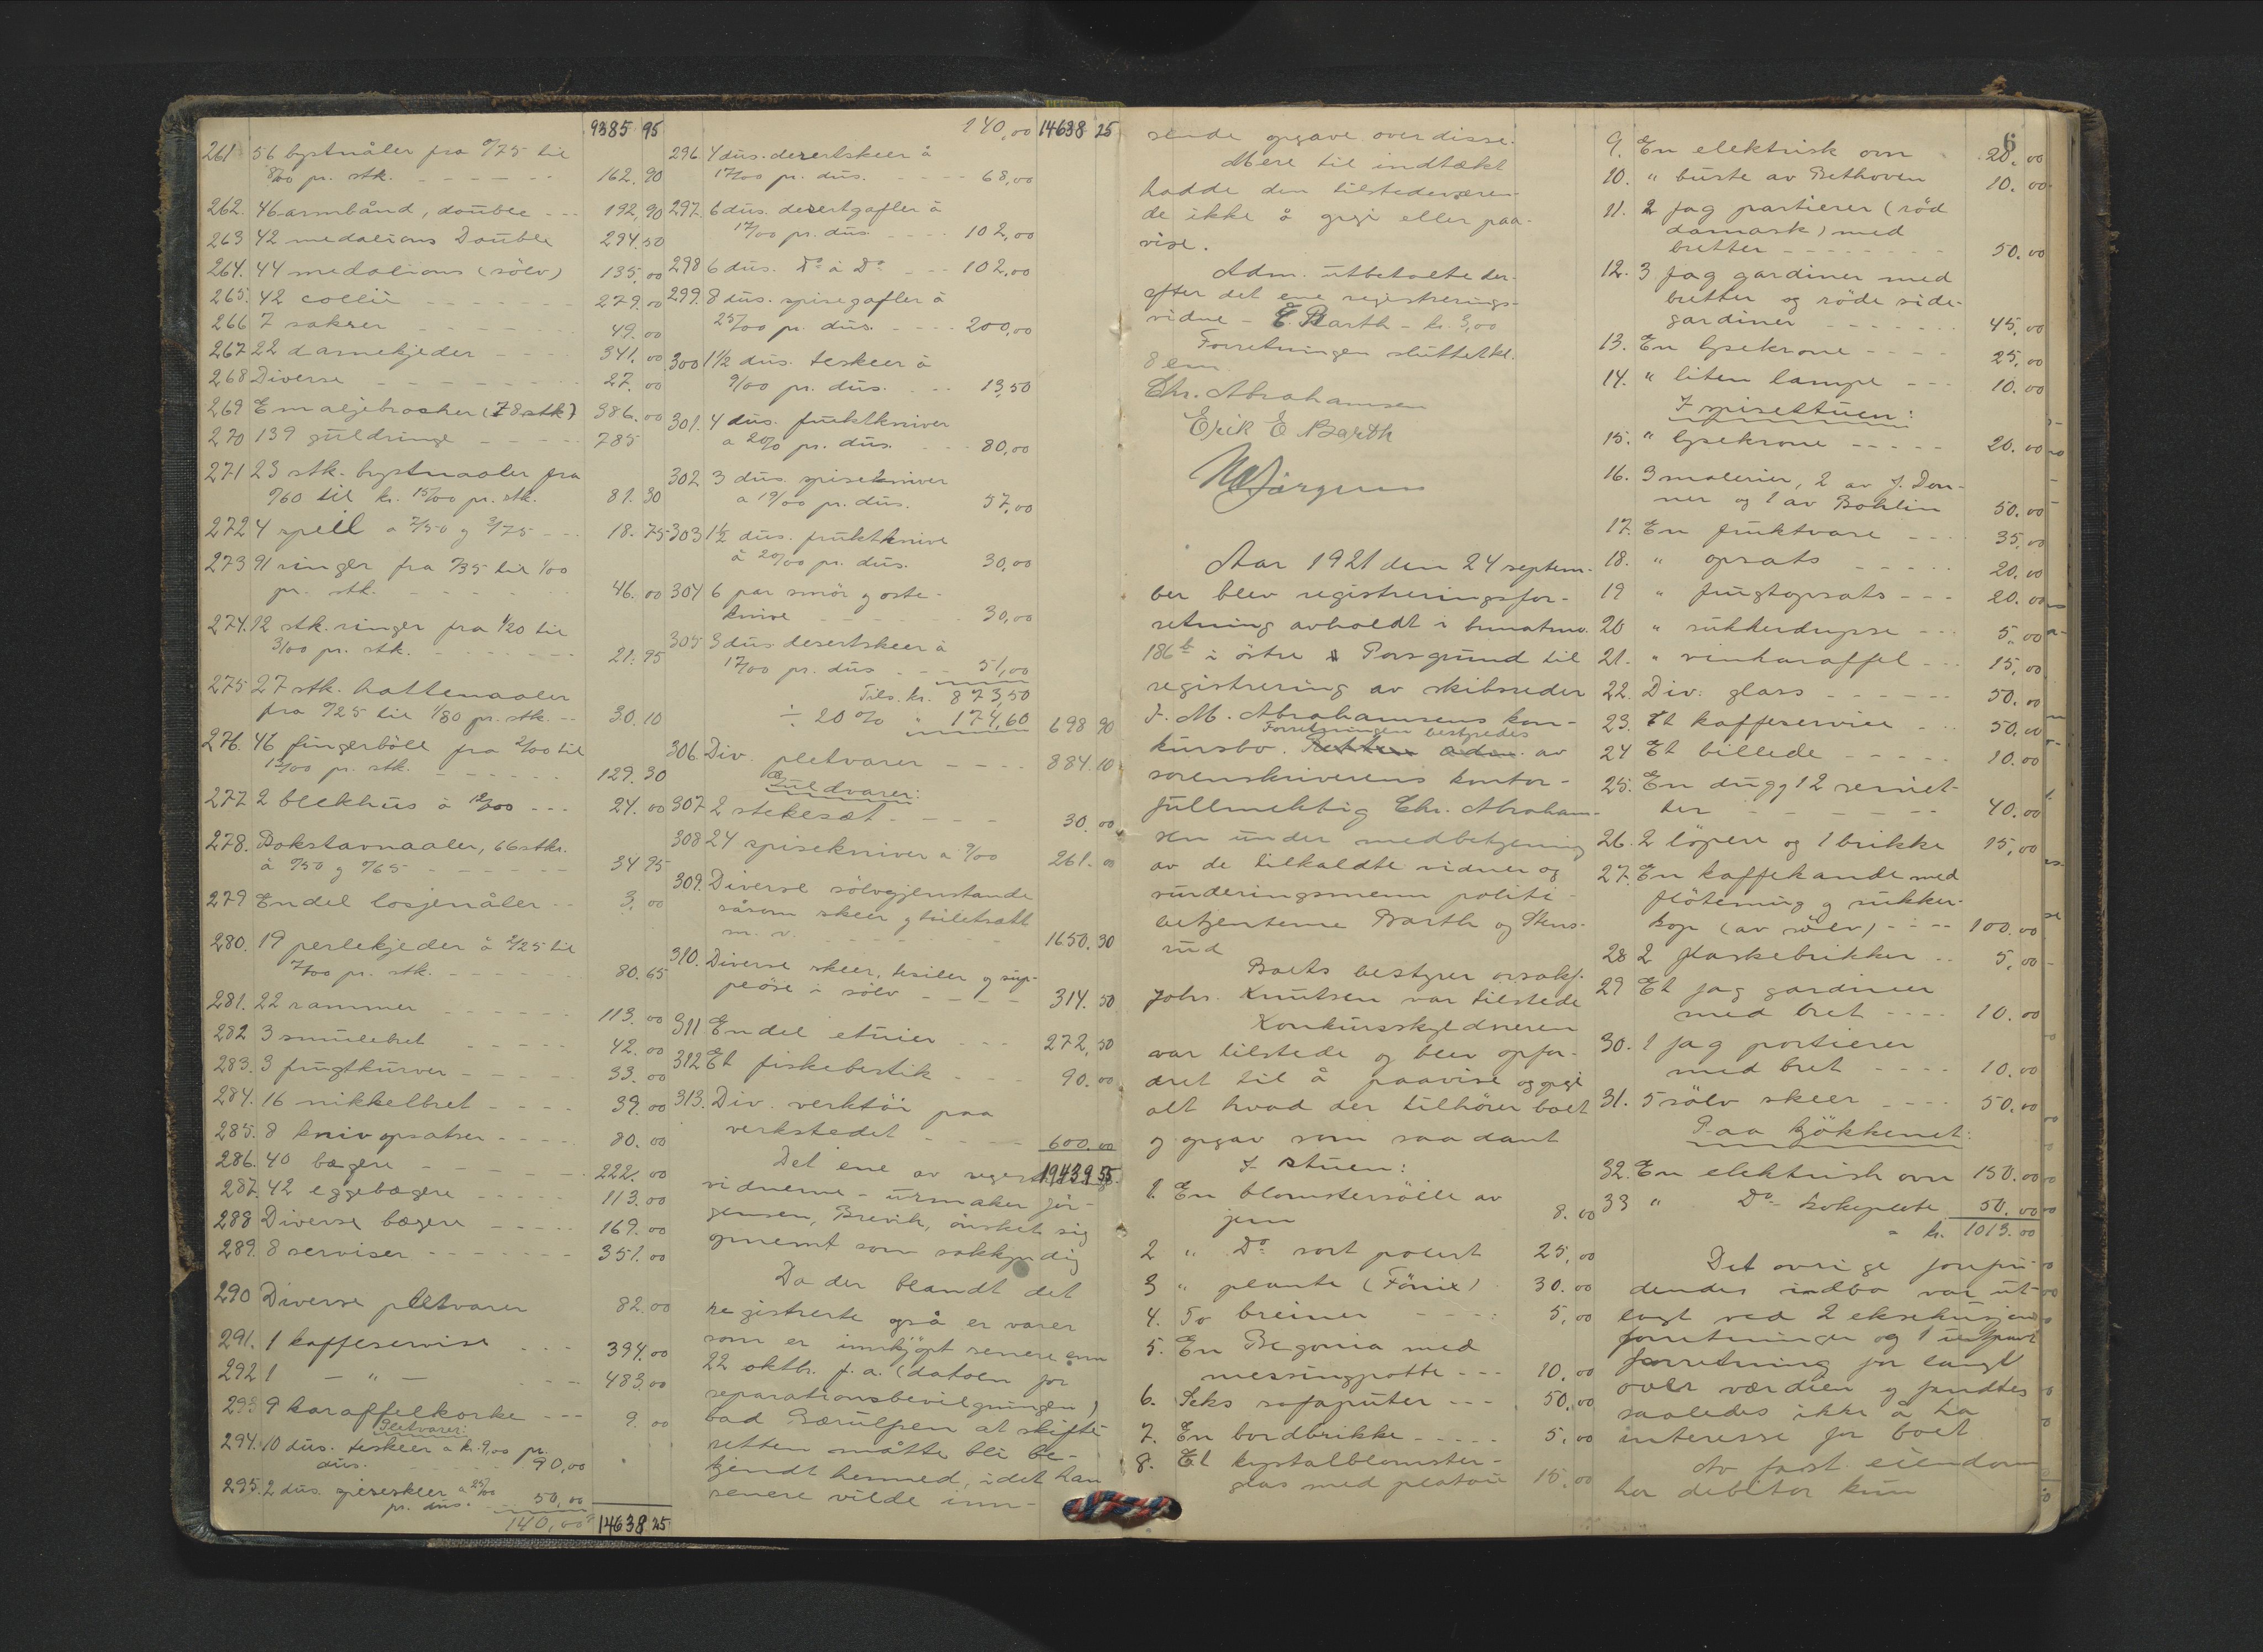 9385 95
261 56 bystnåler fra 0/75 til
8/00 pr. stk. - - - - - - 162. 90
262. 46 armbånd, double - - - 192, 90
263 42 medalions Double 294. 50
264. 44 medalions (sölv) 135, 00
265. 42 collii - - - - - - - 279. 00
266 7 sakser - - - - - - - 49. 00
267 22 damekjeder - - - - 341. 00
268 Diverse - - - - - - - - 27. 00
269 Emaljebroscher (78 stk) 386. 00
270 139 guldringe - - - - - 785
271 23 stk. bystnaaler fra
0/60 til kr. 15/00 pr. stk. 81. 30
272 4 speil a 7/50 og 3/75 - - - 18. 75
273 91 ringer fra 0/35 til 1/00
pr. stk. - - - - - - - 46. 00
274. 12 stk. ringer fra 1/20 til
3/00 pr. stk. - - - - - - - 21. 95
275 27 stk. hattenaaler
fra 0/25 til 1/80 pr. stk. - - 30. 10
276. 46 fingerböll fra 2/00 til
12/00 pr. stk. - - - - - - 129. 30
277 2 blekhus á 12/00 - - - 24. 00
278. Bokstavnaaler, 66 stkr.
á 0/50 og 0/65 - - - - - - 34 95
279 Endel losjenåler - - 3. 00
280. 19 perlekjeder å 2/25 til
7/00 pr. stk. - - - - - - 80. 65
281. 22 rammer - - - - - - 113. 00
282 3 smulebret - - - - - 42. 00
283. 3 frugtkurver - - - - - 33. 00
284. 16 nikkelbret - - - - 39. 00
285. 8 knivopsatser - - - - 80. 00
286. 40 bægere - - - - - - - 222. 00
287. 42 eggebægere - - - - - 113. 00
288 Diverse bægere - - - - - 169. 00
289. 8 serviser - - - - - - - 351. 00
290 Diverse pletvarer 82. 00
291. 1 kaffeservise - - - 394. 00
292 1 — " — - - - 483. 00
293 9 karaffelkorke - - - 9. 00
Pletvarer:
294. 10 dus. teskeer a kr. 9,00 pr.
dus. - - - - - - 90,00
295. 2 dus. spiseskeer a 25/00
pr. dus. - - 50,00
140,00 14638 25
140,00 14638 25
296 4 dus. desertskeer å
17/00 pr. dus. - - - - 68,00
297. 6 dus. desertgafler á
17/00 pr. dus - - - - 102,00
298 6 dus. Do á Do - - - 102,00
299. 8 dus. spisegafler á
25/00 pr. dus. - - - - 200,00
300 1½ dus. teskeer á
9/00 pr. dus. - - 13,50
301. 4 dus. fruktkniver
a 20/0 pr. dus. - - 80,00
302 3 dus. spisekniver
a 19/00 pr. dus. 57,00
303 1½ dus. fruktknive
á 20/00 pr. dus. 30,00
304 6 par smör og oste-
knive - - - - - - 30,00
305 3 dus desertskeer á
17/00 pr. dus - - - 51,00
Tils. kr. 873,50
÷ 20% " 174,60 698 90
306. Div. pletvarer - - - - 884. 10
Guldvarer:
307 2 stekesæt - - - - - 30. 00
308 24 spisekniver a 9/00 261. 00
309. Diverse sölvgjenstande
såsom skeer og toiletsætt
m. v. - - - - - - - 1650. 30
310. Diverse skeer, tesiler og sup-
peöse i sölv - - - - 314. 50
311 Endel etuier - - - 272, 50
312 Et fiskebestik - - - 90. 00
313. Div. verktöi paa
verkstedet - - - - 600. 00
19439 55
Det ene av registrerings-
vidnerne - urmaker Jör-
gensen, Brevik, önsket sig
opnemt som sakkyndig
Da der blandt det
registrerte også er varer
som er innkjöpt senere enn
22 oktbr. f. a. (datoen for
separationsbevilgningen)
bad Bærulfsen at skifte
retten måtte bli be-
kjendt hermed, idet han
senere vilde inn-
sende opgave over disse.
Mere til indtækt
hadde den tilstedeværen-
de ikke å opgi eller paa-
vise.
Adm. utbetalte der-
efter det ene registrerings-
vidne - E. Barth - kr. 3,00
Forretningen sluttet kl.
8 em.
Chr. Abrahamsen
Erik E Barth
Aar 1921 den 24 septem-
ber blev registreringsfor-
retning avholdt i bunatmr.
186b i östre Porsgrund til
registrering av skibsreder
J. M. Abrahamsens kon-
Forretningen bestyredes
kursbo. Retten adm. av
sorenskriverens kontor-
fullmektig Chr. Abraham-
sen under medbetjening
av de tilkaldte vidner og
vurderingsmenn politi-
betjenterne Barth og Stens-
rud
Boets bestyrer orsakf.
Johs. Knutsen var tilstede
Konkursskyldneren
var tilstede og blev opfor-
dret til å paavise og opgi
alt hvad der tilhörer boet
og opgav som saadant
I stuen:
1. En blomstersöile av
jern 8. 00
2 " Do sort polert 25, 00
3 " plante (Fönix) 30. 00
4. To breiner - - - - 5, 00
5. En Begonia med
messingpotte - - - 10. 00
6. Seks sofaputer - - - 50. 00
7. En bordbrikke - - - - - 5. 00
8. Et krystalblomster-
glas med platou 15. 00
6
9. En elektrisk ovn 20. 00
10. " buste av Bethoven 10. 00
11. 2 fag partierer (röd
damask) med
bretter - - - - - - - 50. 00
12. 3 fag gardiner med
bretter og röde side-
gardiner - - - - - - - 45, 00
13. En lysekrone - - - - 25. 00
14. " liten lampe - - - 10. 00
I spisestuen:
15. " lysekrone - - - - - 20. 00
16. 3 malerier, 2 av J. Don-
ner og 1 av Bohlin 50. 00
17. En fruktvase - - - 35, 00
18. " opsats - - - - - 20. 00
19 " frugtopsats - - - 20. 00
20 " sukkerdrysse - - - 5. 00
21. " vinkaraffel - - - 15, 00
22. Div. glass - - - - - - 50. 00
23. Et kaffeservice - - 50. 00
24 Et billede - - - - - 10. 00
25. En dug og 12 serviet-
ter - - - - - - - 40. 00
26. 2 löpere og 1 brikke 15, 00
27. En kaffekande med
flötemug og sukker-
kop (av sölv) - - - - 100. 00
28 2 flaskebrikker - - 5, 00
29 Et fag gardiner
med bret - - - - 10. 00
30. 1 fag portierer
med bret - - - - 10. 00
31. 5 sölv skeer - - - - 50. 00
Paa kjökkenet:
32. En elektrisk ovn 150. 00
33 " Do kokeplate 50. 00
= kr. 1013. 00
Det övrige forefin-
dendes indbo var ut-
lagt ved 2 eksekusjons
forretninger og 1 utpant
forretning for langt
over værdien og fandtes
saaledes ikke å ha
interesse for boet
Av fast eiendom
har debitor kun